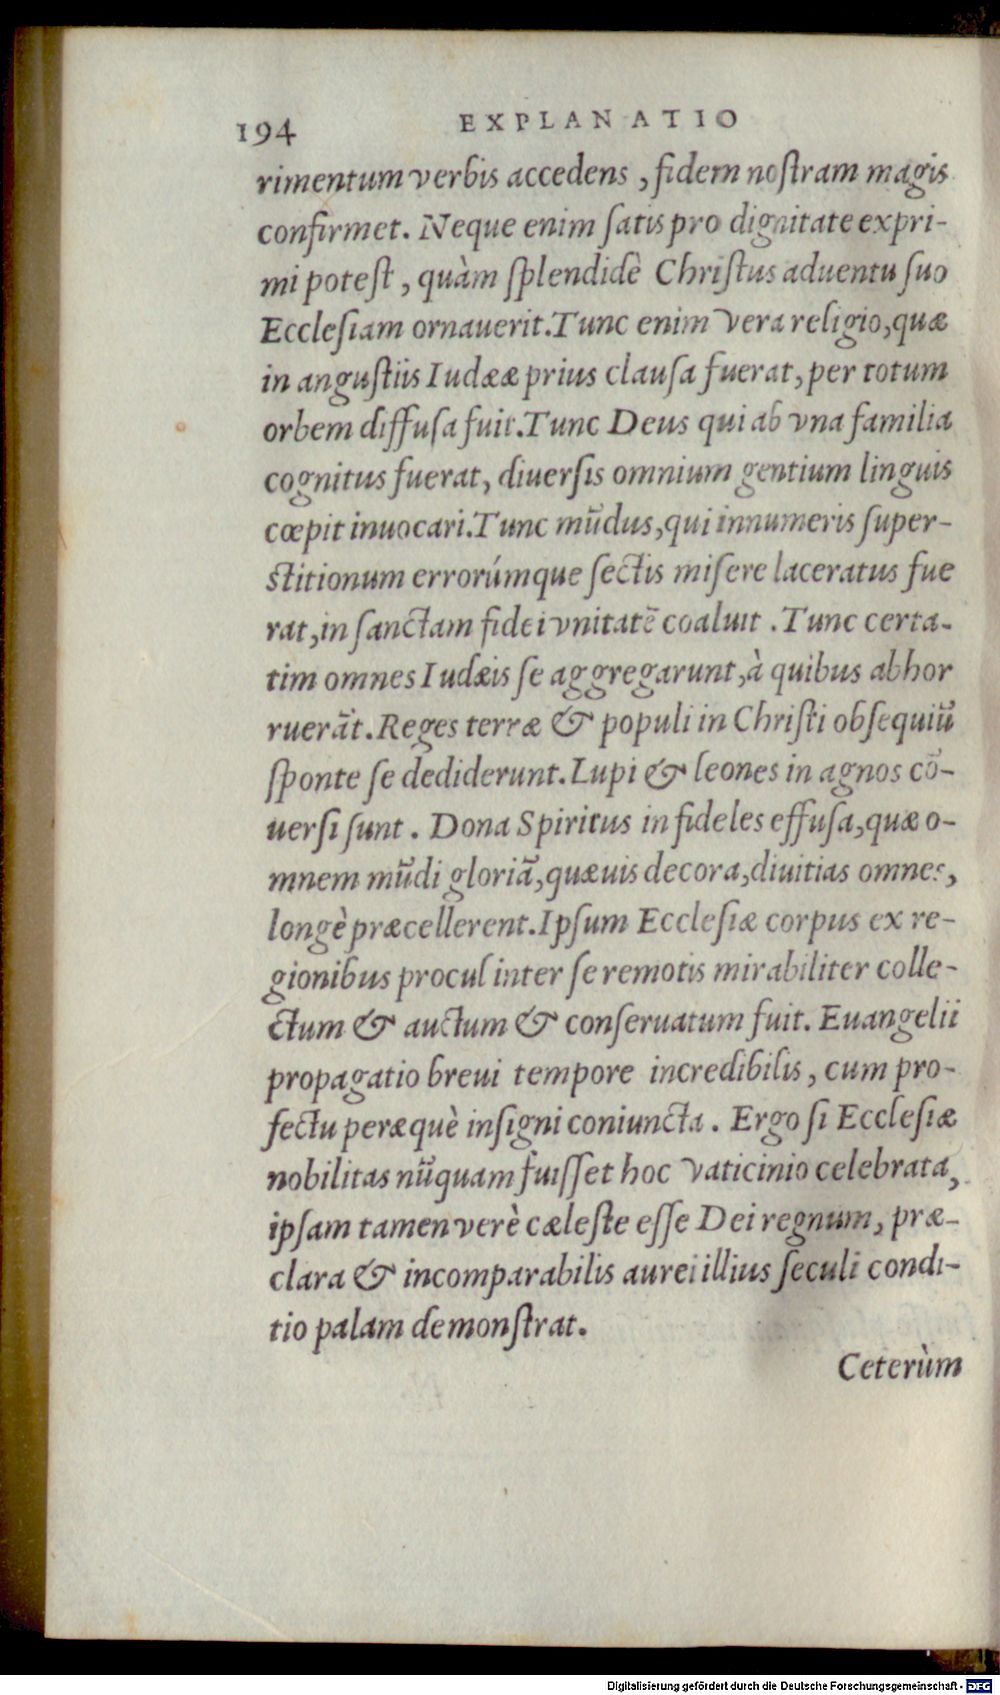 194 EXPLANATIO
rimentum verbis accedens , fidem noſtram magis
confirmet. Neque enim ſatis pro dignitate expri-
mi poteſt , quàm ſplendidè Chriſtus aduentu ſuo
Eccleſiam ornauerit. Tunc enim vera religio, quæ
in anguſtiis Iudææ prius clauſa fuerat, per totum
orbem diffuſa fuit. Tunc Deus qui ab vna familia
cognitus fuerat, diuerſis omnium gentium linguis
cœpit inuocari. Tunc mũdus, qui innumeris ſuper-
ſtitionum errorúmque ſectis miſere laceratus fue
rat, in ſanctam fidei vnitatẽ coaluit . Tunc certa-
tim omnes Iudæis ſe aggregarunt, à quibus abhor
ruerãt. Reges terræ & populi in Chriſti obſequiũ
ſponte ſe dediderunt. Lupi & leones in agnos cõ-
uerſi ſunt . Dona Spiritus in fideles effuſa, quæ o-
mnem mũdi gloriã, quæuis decora, diuitias omnes,
longè præcellerent. Ipſum Eccleſiæ corpus ex re-
gionibus procul inter ſe remotis mirabiliter colle-
ctum & auctum & conſeruatum fuit. Euangelii
propagatio breui tempore incredibilis , cum pro-
fectu peræquè inſigni coniuncta . Ergo ſi Eccleſiæ
nobilitas nũquam fuiſſet hoc vaticinio celebrata,
ipſam tamen verè cæleſte eſſe Dei regnum, præ-
clara & incomparabilis aurei illius ſeculi condi-
tio palam demonſtrat.
Ceterùm
Digitalisierung gefördert durch die Deutsche Forschungsgemeinschaft - DFG